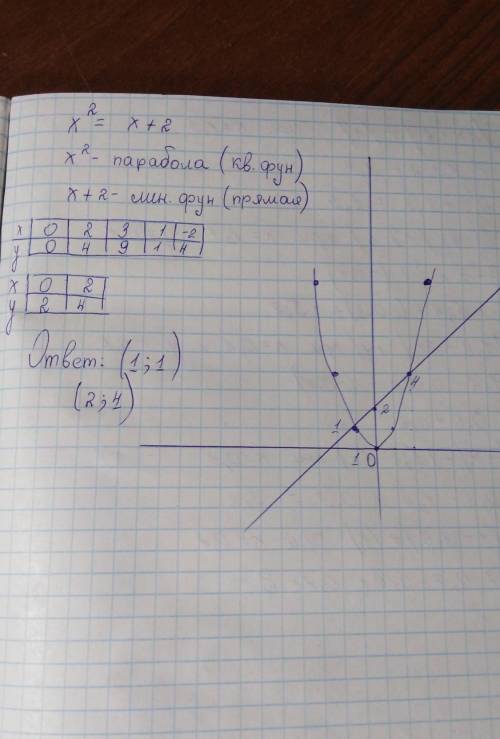 x² = x + 2
x² - парабола (кв. фун)
x + 2 - лин. фун (прямая)
x 0 2 3 1 -2
y 0 4 9 1 4
x 0 2
y 2 4
Ответ: (1;1)
(2;4)
4
2
1
1 0